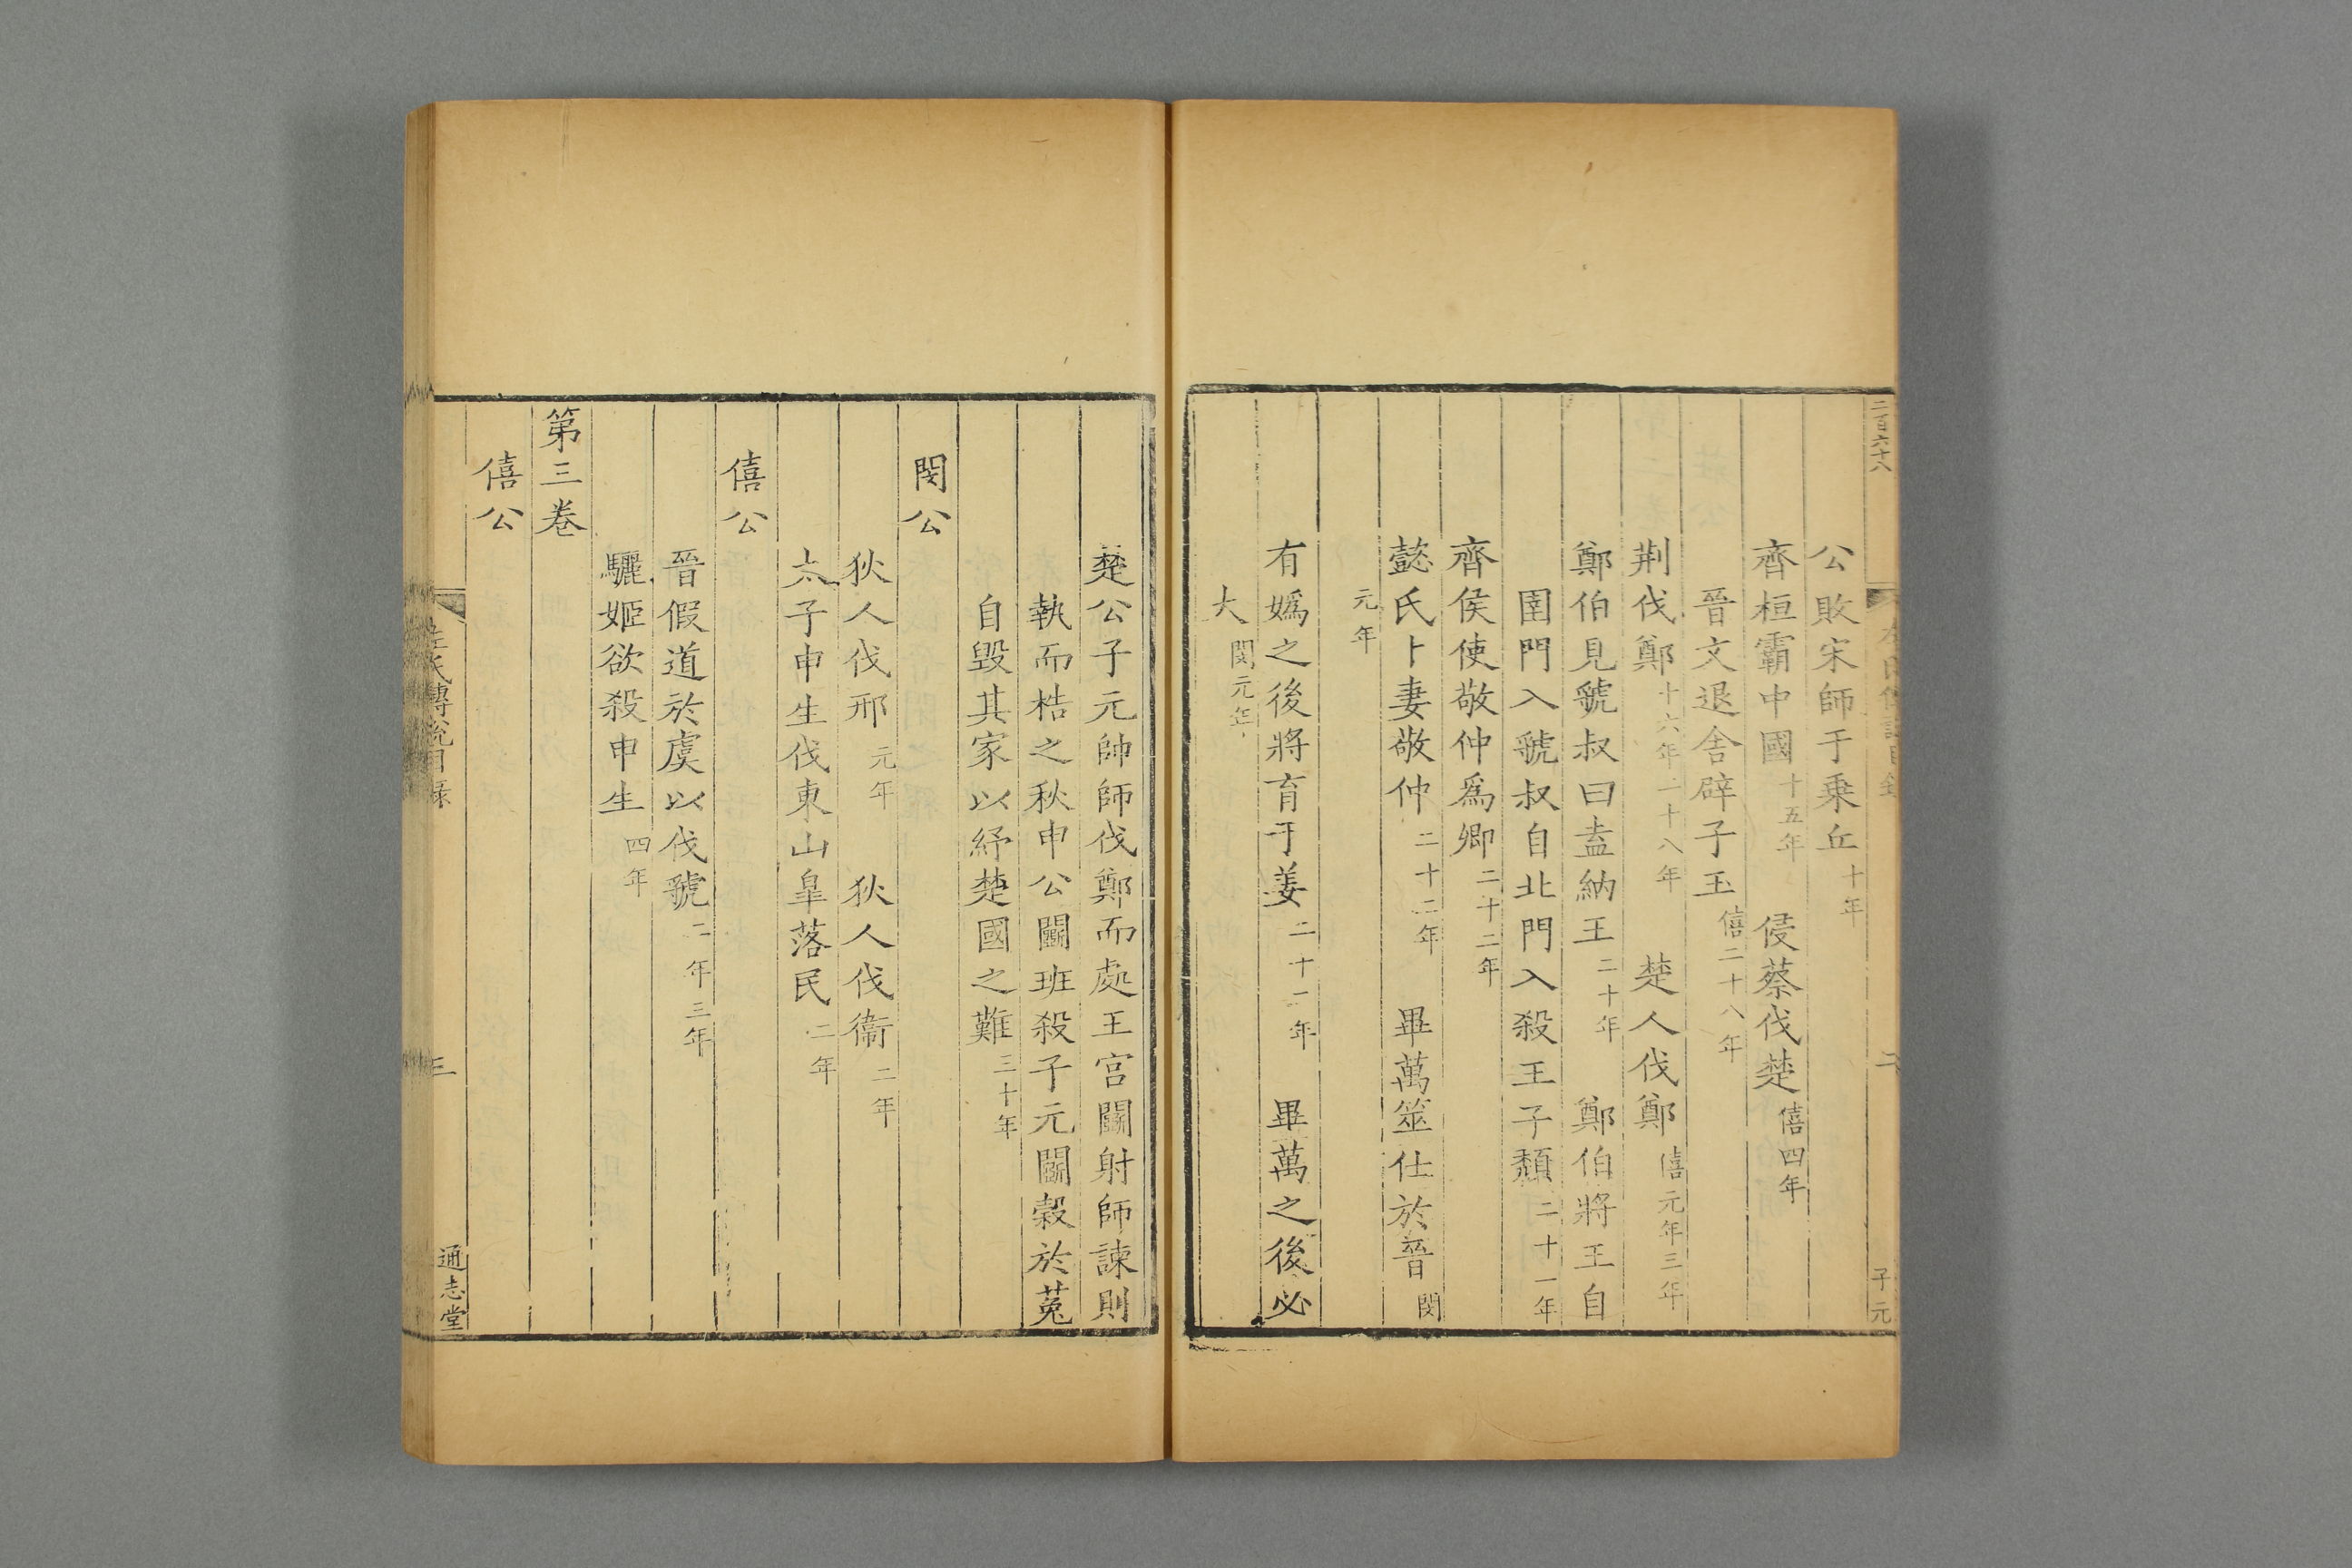 二百六十八
二
子元
公敗宋師于乗丘十年
齊桓霸中國十五年　侵蔡伐楚僖四年
晉文退舍辟子玉僖二十八年
荆伐鄭十六年二十八年　楚人伐鄭僖元年三年
鄭伯見虢叔曰盍納王二十年　鄭伯將王自
圉門入虢叔自北門入殺王子頽二十一年
齊侯使敬仲爲卿二十二年
懿氏卜妻敬仲二十二年　畢萬筮仕於晉閔
元年
有嬀之後將育于姜二十二年　畢萬之後必
大閔元年
楚公子元帥師伐鄭而處王宫鬬射師諫則
執而梏之秋申公鬬班殺子元鬬榖於菟
自毁其家以紓楚國之難三十年
閔公
狄人伐邢元年　狄人伐衞二年
太子申生伐東山臯落氏二年
僖公
晉假道於虞以伐虢二年三年
驪姬欲殺申生四年
第三卷
僖公
左氏傳說目録
三
通志堂